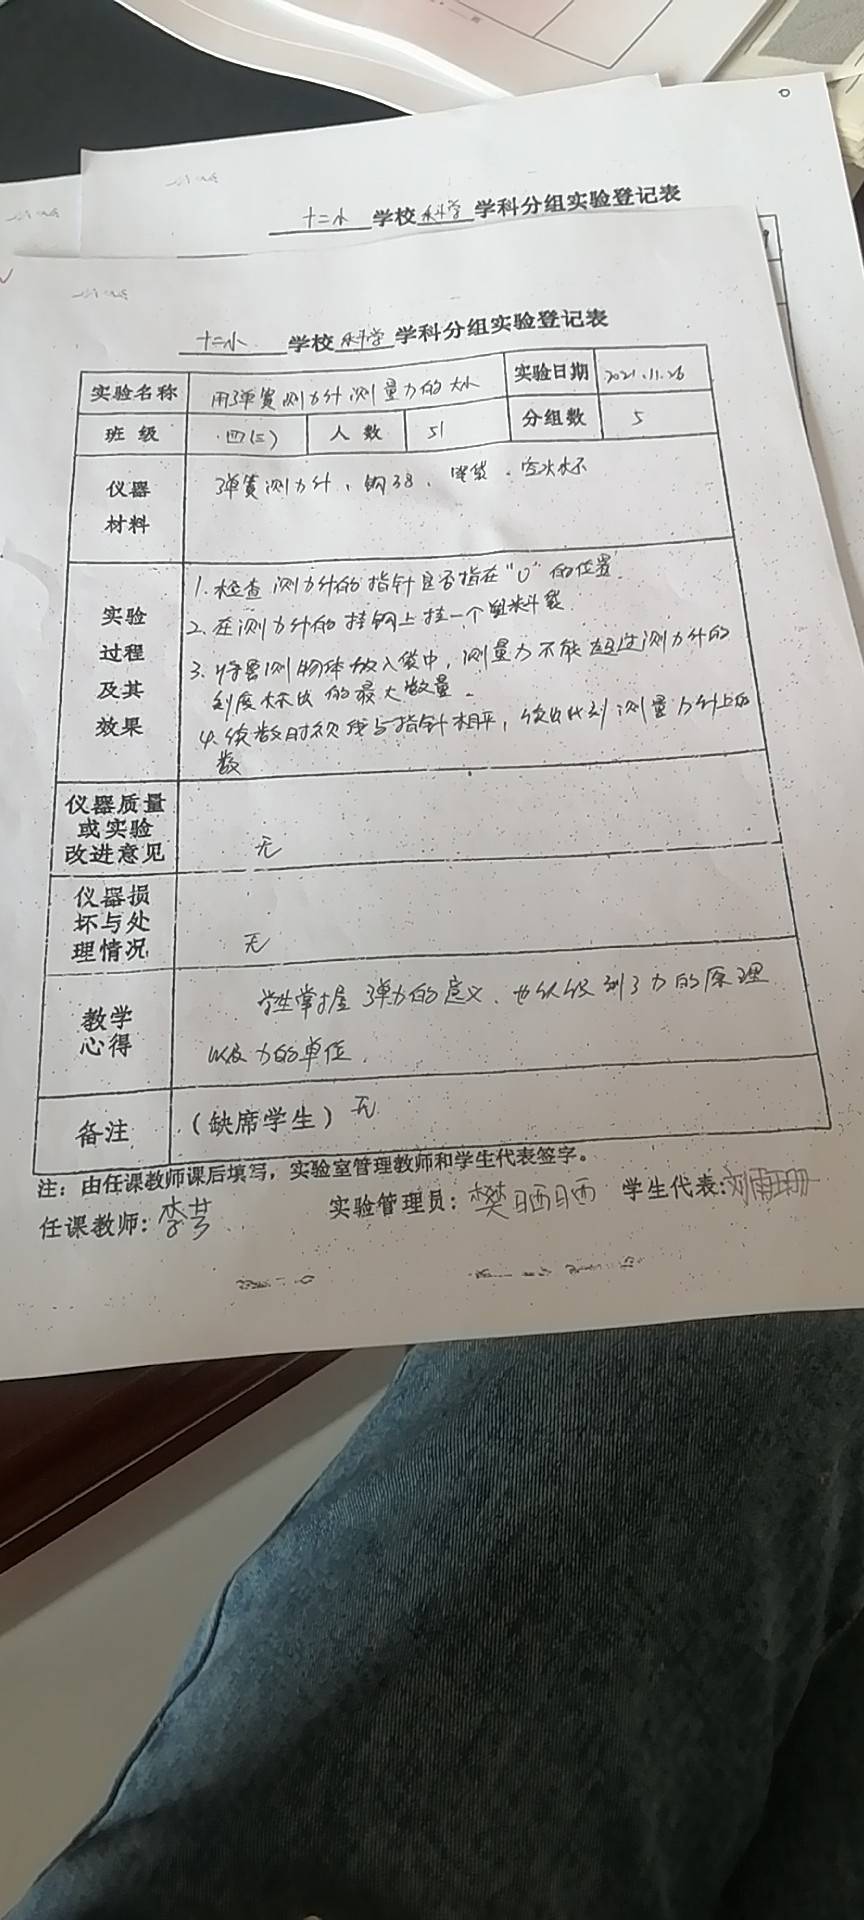 十二小 学校 科学 学科分组实验登记表
十二小 学校 科学 学科分组实验登记表
实验名称 用弹簧测力计测量力的大小 实验日期 2021.11.26
班 级 四(三) 人 数 51 分组数 5
仪器材料 弹簧测力计、钩码、
实验过程及其效果
1.检查测力计的指针是否指在“0”的位置
2.在测力计的挂钩上挂一个塑料袋
3.将要测物体放入袋中,测量力不能超过测力计的
刻度标出的最大数量。
4.读数时视线与指针相平,读出 测量力计上的
数
仪器质量或实验改进意见 无
仪器损坏与处理情况 无
教学心得 学生掌握弹力的意义、也 到了力的原理
以及力的单位.
备注 (缺席学生) 无
注:由任课教师课后填写,实验室管理教师和学生代表签字。
任课教师:李芳 实验管理员:樊晒晒 学生代表:刘雨珊